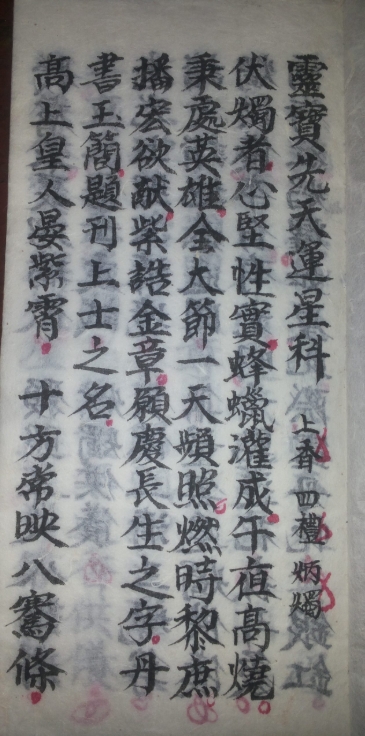 靈寶先天運星科 上香四禮 炳燭
伏燭者心堅性實蜂蠟灌成午夜高燒
秉處英雄全大節一天頻照燃時黎庶
播宏欲猷紫誥金章願慶長生之字丹
書玉簡題刊上士之名
高上皇人晏紫霄 十方常映八騫條